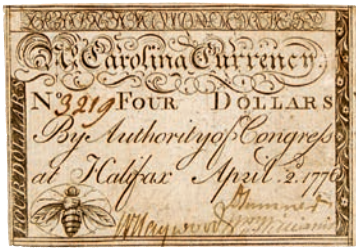 Nº. Carolina Currency.
Nº 3219 FOUR DOLLARS
By Authority of Congress
at Halifax April. 2. 1776
FOUR DOLLARS
WHaywood